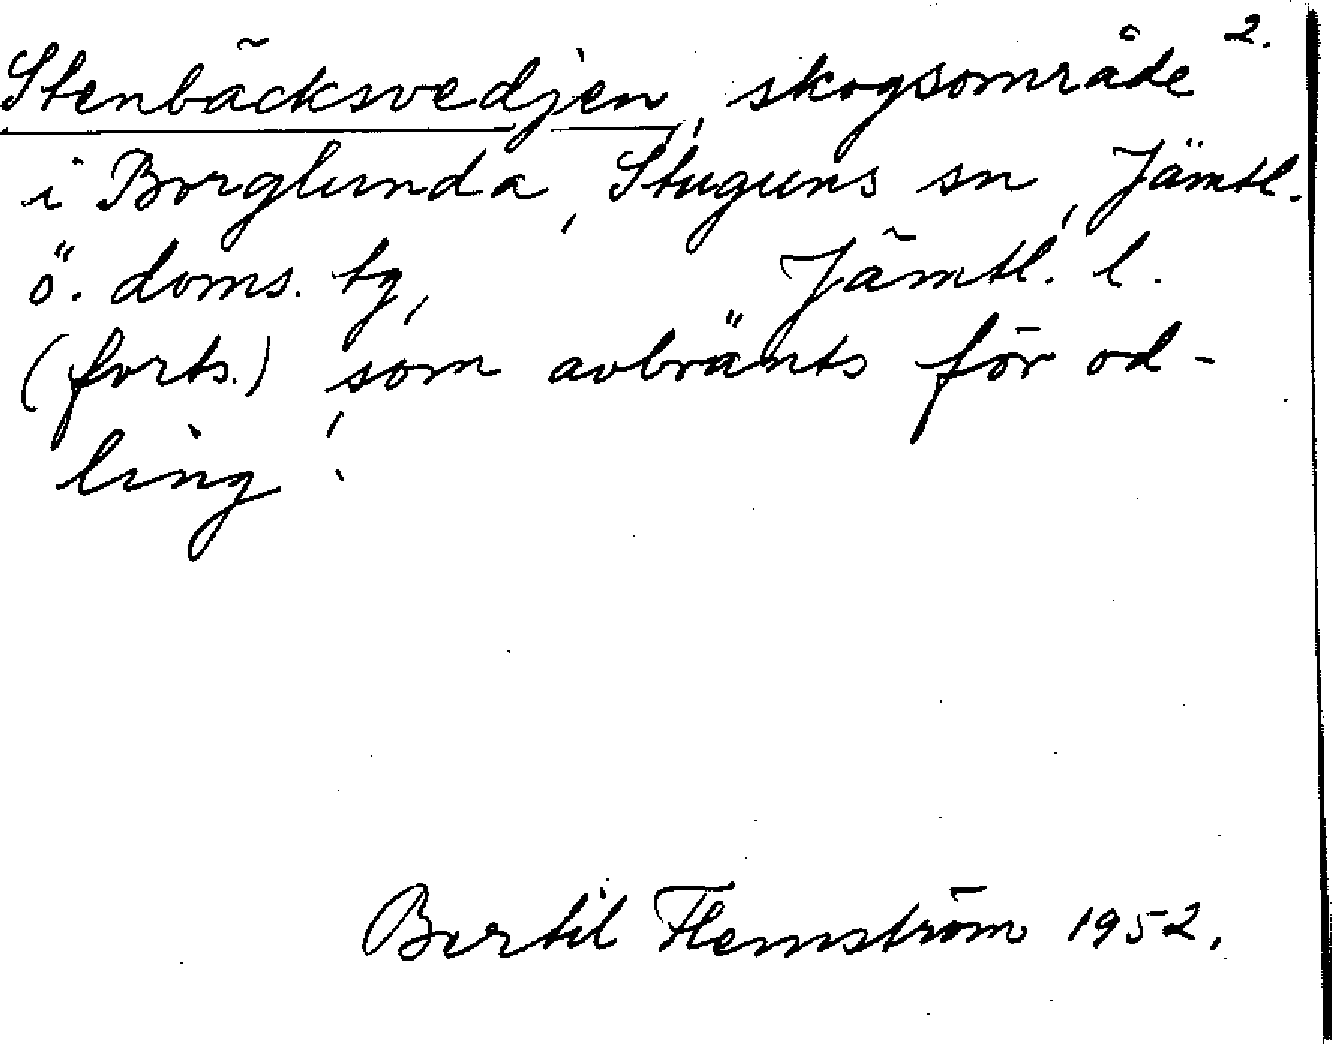 2.
Stenbäcksvedjen, skogsområde
i Borglunda, Stuguns sn, Jämtl.
ö. doms. tg, Jämtl. l.
(forts.) som avbränts för od-
ling.
Bertil Flemström 1952.